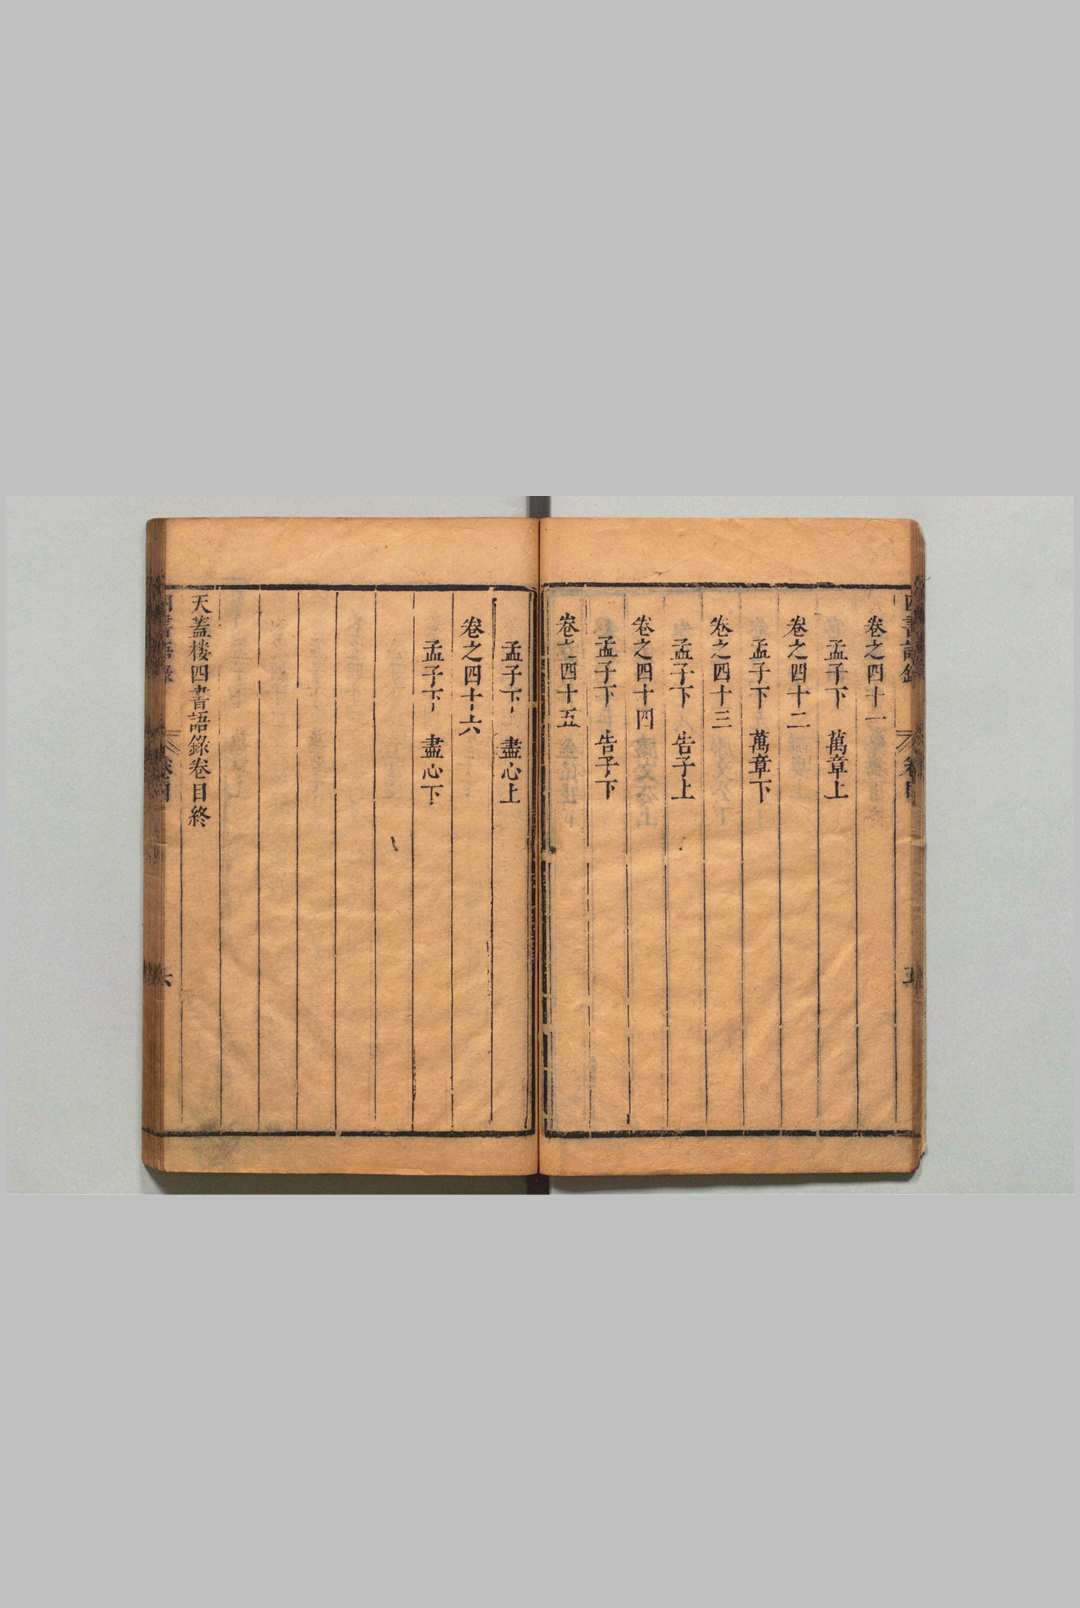 卷之四十一
孟子下 萬章上
卷之四十二
孟子下 萬章下
卷之四十三
孟子下 告子上
卷之四十四
孟子下 告子下
卷之四十五
孟子下 盡心上
卷之四十六
孟子下 盡心下
天蓋樓四書語錄卷目終
四書語錄
卷目
五
四書語錄
卷目
六